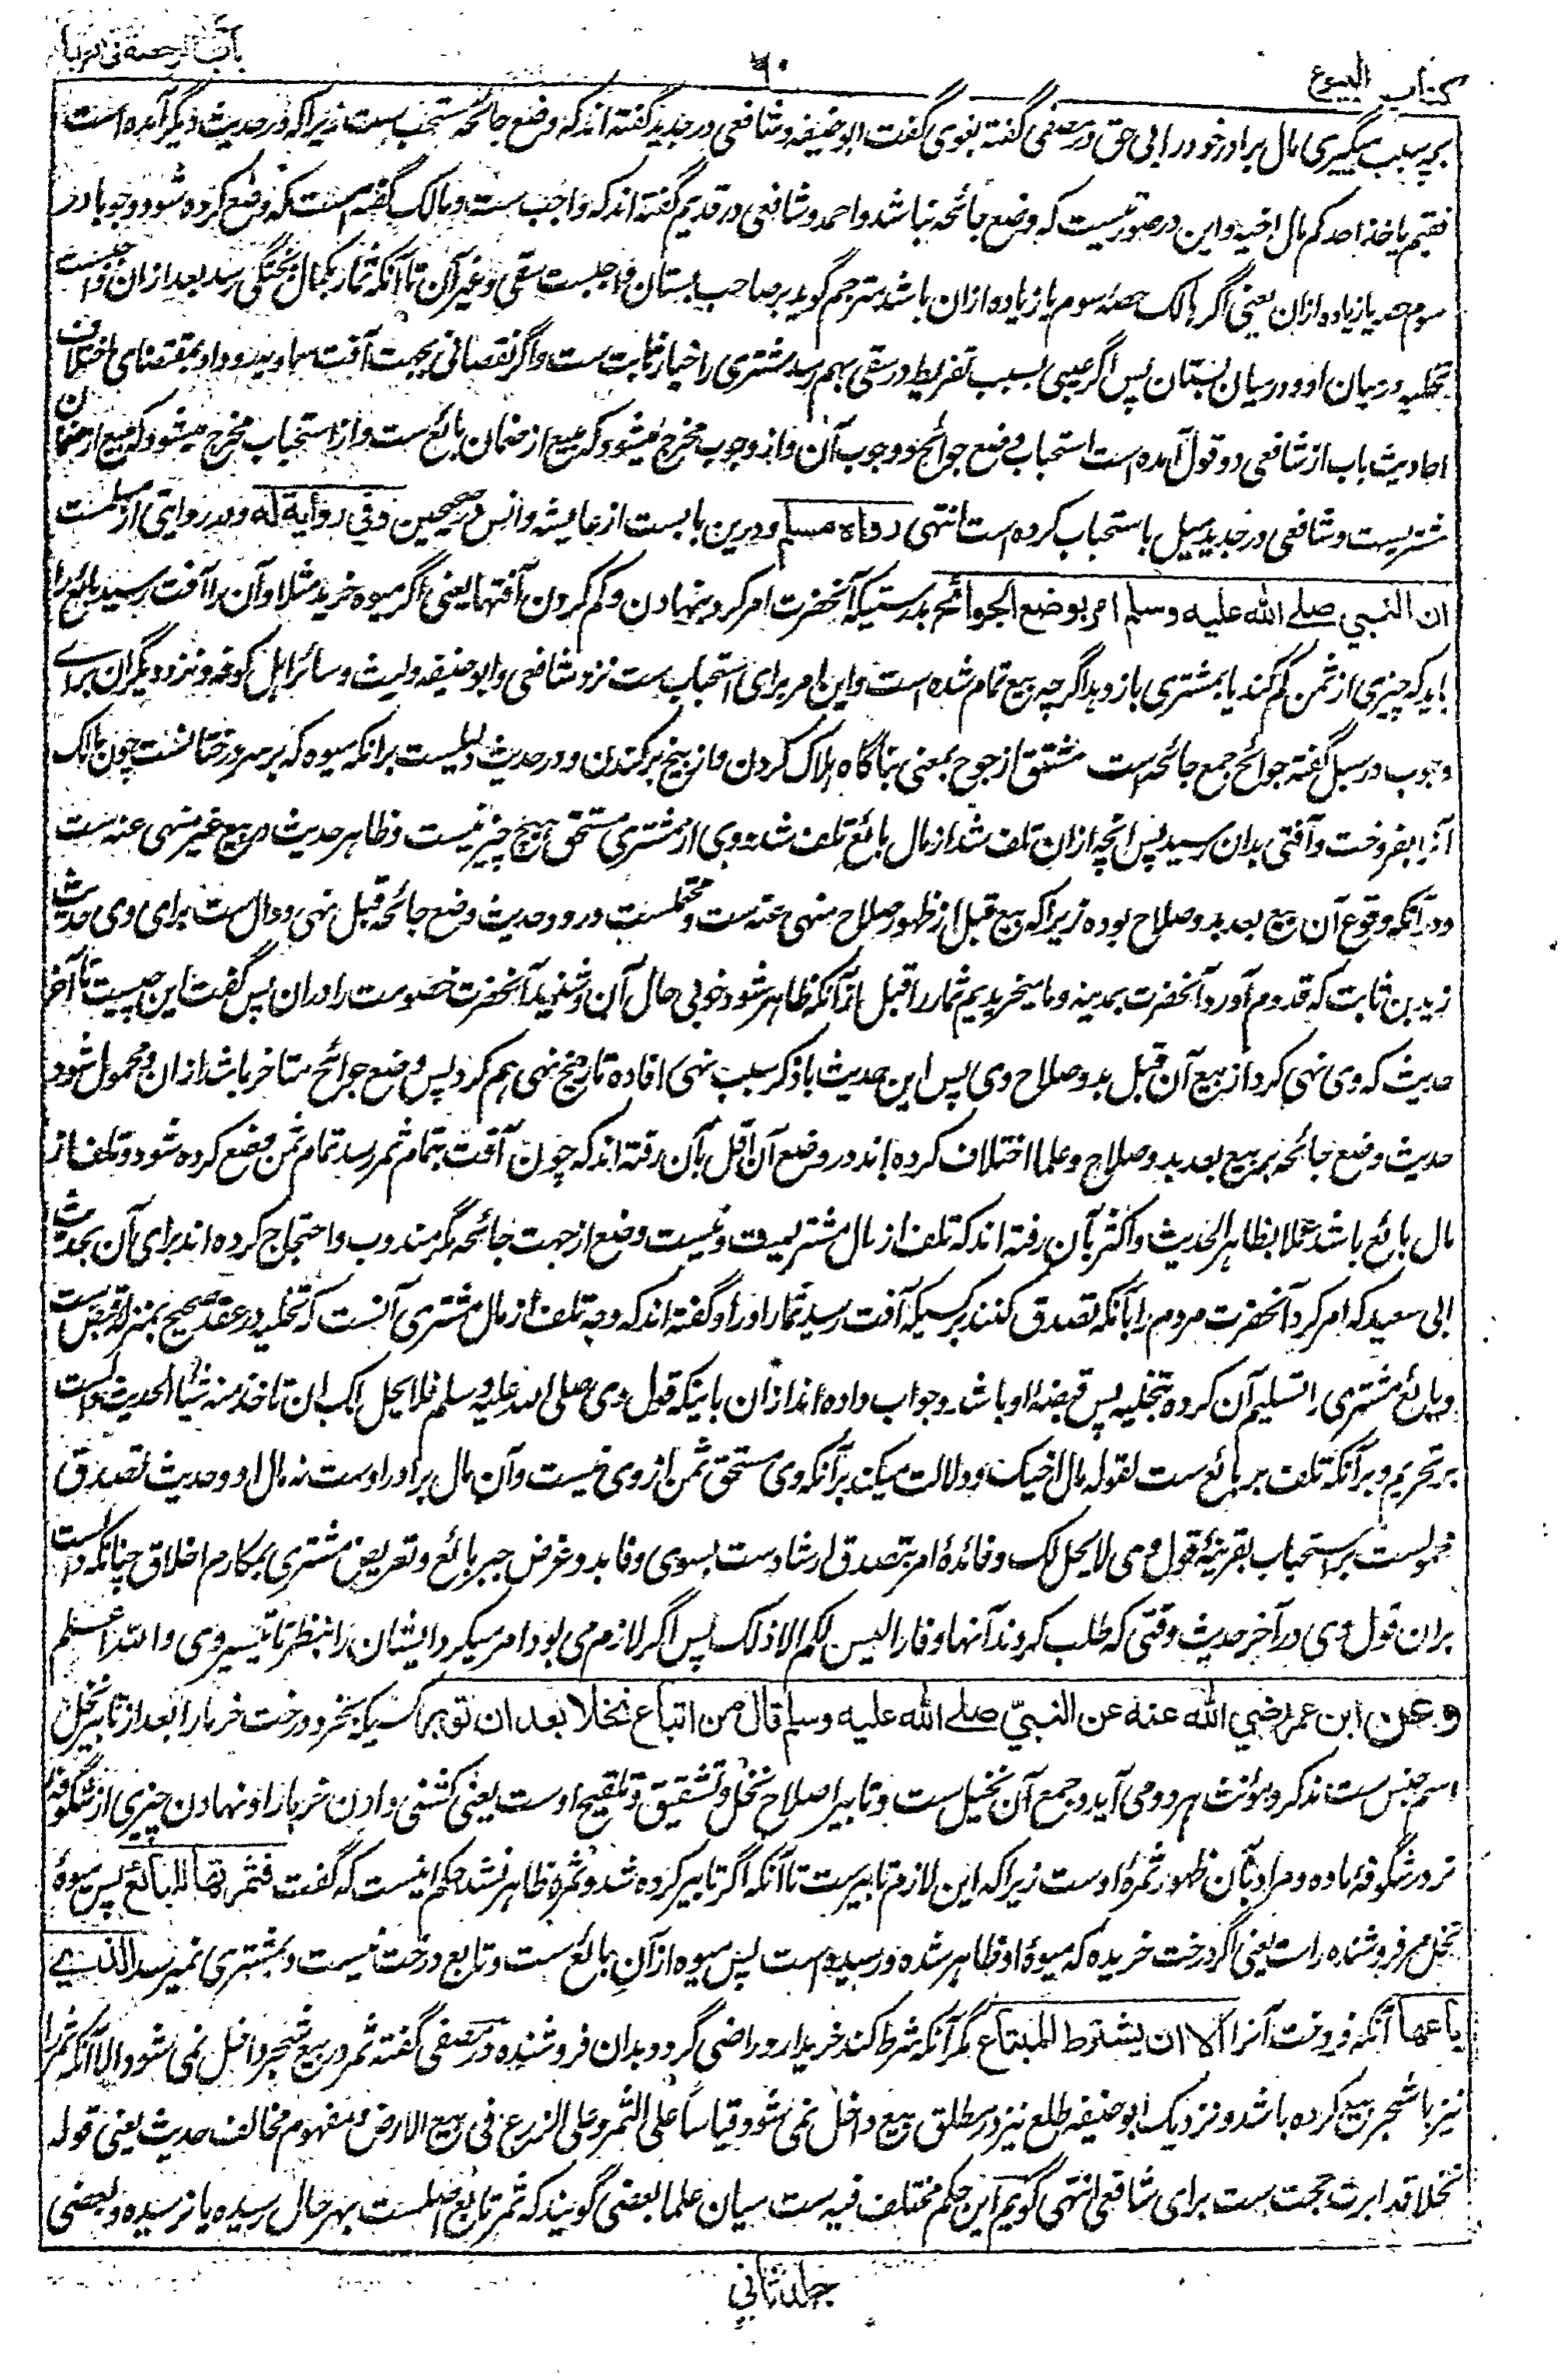 کتاب البیوع
۹۰
باب الرخصة فی العرایا
بچه سبب میگیری مال برادر خود را بی حق در مصفی گفته بغوی گفت ابو حنیفه و شافعی در جدید گفته اند که وضع جائحه مستحب ست زیراکه در حدیث دیگر آمده است
فبم یاخذ احدکم مال اخیه و این در صورتیست که وضع جائحه نباشد و احمد و شافعی در قدیم گفته اند که واجب ست و مالک گفته است که وضع کرده شود وجوبا در
سوم حصه یا زیاده ازان یعنی اگر هالک حصۀ سوم یا زیاده ازان باشد مترجم گوید بر صاحب بستان واجبست سقی و غیر آن تا آنکه ثمار بکمال پختگی رسد بعد ازان واجبست
تخلیه درمیان او و درمیان بستان پس اگر عیبی بسبب تفریط در سقی بهم رسد مشتری را خیار ثابت ست و اگر نقصانی بجهت آفت سماویه رو داد بمقتضای اختلاف
احادیث باب از شافعی دو قول آمده است استحباب وضع جوائح و وجوب آن و از وجوب مخرج میشود که مبیع از ضمان بائع ست و از استحباب مخرج میشود که مبیع از ضمان
مشتریست و شافعی در جدید میل باستحباب کرده است انتهی رواه مسلم و درین بابست از عایشه و انس در صحیحین وفی روایة له و در روایتی از مسلمست
ان النبی صلے الله علیه وسلم امر بوضع الجوائح بدرستیکه آنحضرت امر کرد بنهادن و کم کردن آفتها یعنی اگر میوه خرید مثلا و آن را آفت رسید بائع را
باید که چیزی از ثمن کم کند یا بمشتری باز دهد اگرچه بیع تمام شده است و این امر برای استحباب ست نزد شافعی و ابو حنیفه و لیث و سائر اهل کوفه و نزد دیگران برای
وجوب در سبل گفته جوائح جمع جائحه است مشتق از جوح بمعنی بناگاه هلاک کردن و از بیخ برکندن و در حدیث دلیلست برانکه میوه که بر سر درختانست چون مالک
آنرا بفروخت و آفتی بدان رسید پس انچه ازان تلف شد از مال بائع تلف شد و وی از مشتری مستحق هیچ چیز نیست و ظاهر حدیث در بیع غیر منهی عنه ست
و در آنکه وقوع آن بیع بعد بدو صلاح بوده زیراکه بیع قبل از ظهور صلاح منهی عنه ست و محتملست ورود حدیث وضع جائحه قبل نهی و دال ست برای وی حدیث
زید بن ثابت که قدوم آورد آنحضرت بمدینه و ما میخریدیم ثمار را قبل ازآنکه ظاهر شود خوبی حال آن و شنید آنحضرت خصومت را دران پس گفت این چیست تا آخر
حدیث که وی نهی کرد از بیع آن قبل بدو صلاح وی پس این حدیث با ذکر سبب نهی افاده تاریخ نهی هم کرد پس وضع جوائح متاخر باشد ازان و محمول شود
حدیث وضع جائحه بر بیع بعد بدو صلاح و علما اختلاف کرده اند در وضع آن اقل بآن رفته اند که چون آفت بتمام ثمر رسد تمام ثمن وضع کرده شود و تلف از
مال بائع باشد عملا بظاهر الحدیث و اکثر بآن رفته اند که تلف از مال مشتریست و نیست وضع از جهت جائحه مگر مندوب و احتجاج کرده اند برای آن بحدیث
ابی سعید که امر کرد آنحضرت مردم را بآنکه تصدق کنند بر کسیکه آفت رسید ثمار او را و گفته اند که وجه تلف از مال مشتری آنست که تخلیه در عقد صحیح بمنزلۀ قبض ست
و بائع مشتری را تسلیم آن کرده بتخلیه پس قبضۀ او باشد و جواب داده اند ازان باینکه قول وی صلی الله علیه وسلم فلا یحل لک ان تاخذ منه شیئا الحدیث دالست
بر تحریم و برآنکه تلف بر بائع ست لقوله مال اخیک و دلالت میکند برآنکه وی مستحق ثمن از وی نیست و آن مال برادر اوست نه مال او و حدیث تصدق
محمولست بر استحباب بقرینۀ قول وی لا یحل لک و فائدۀ امر بتصدق ارشادست بسوی وفا بدو غرض جبر بائع و تعریض مشتری بمکارم اخلاق چنانکه دالست
بران قول وی در آخر حدیث وقتی که طلب کردند آنها وفا را لیس لکم الا ذلک پس اگر لازم می بود امر میکرد ایشان را بنظر تا تیسیر وی و الله اعلم
وعن ابن عمر رضی الله عنه عن النبیّ صلے الله علیه وسلم قال من ابتاع نخلا بعد ان تؤبر کسیکه بخرد درخت خرما را بعد از تابیر نخل
اسم جنس ست مذکر و مؤنث هر دو می آید و جمع آن نخیل ست و تابیر اصلاح نخل و تشقیق و تلقیح اوست یعنی کشنی دادن خرما را و نهادن چیزی از شگوفۀ
نر در شگوفۀ ماده و مراد بآن ظهور ثمرۀ اوست زیراکه این لازم تابیرست تا آنکه اگر تابیر کرده شد و ثمره ظاهر نشد حکم اینست که گفت فثمرتها للبائع پس میوۀ
نخل مر فروشنده راست یعنی اگر درخت خریده که میوۀ او ظاهر شده و رسیده است پس میوه ازآن بائع ست و تابع درخت نیست و بمشتری نمیرسد الذے
باعها آنکه فروخت آنرا الا ان یشترط المبتاع مگر آنکه شرط کند خریدار و راضی گردد بدان فروشنده در مصفی گفته ثمر در بیع شجر داخل نمی شود الا آنکه ثمر را
نیز با شجر بیع کرده باشد و نزدیک ابو حنیفه طلع نیز در مطلق بیع داخل نمی شود قیاساً علی الثمر و علی الزرع فی بیع الارض و مفهوم مخالف حدیث یعنی قوله
نخلا قد ابرت حجت ست برای شافعی انتهی گویم این حکم مختلف فیه ست میان علما بعضی گویند که ثمر تابع اصلست بهر حال رسیده یا نرسیده و بعضی
جلد ثانی